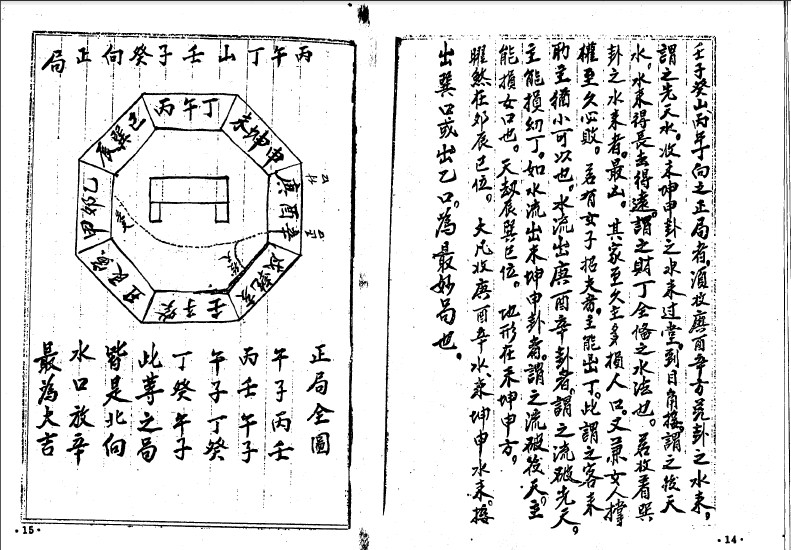 壬子癸山丙午丁向之正局者。須收庚酉辛方兌卦之水來,
謂之先天水。收未坤申卦之水來过堂。到目角接。謂之後天
水。水來得長去得遠。謂之財丁全俻之水法也。若收着巽
卦之水來者。最凶。其家至久主多損人口。又兼女人撑
權至久必敗。若有女子招夫者。主能出丁。此謂之客來
助主稍小可以也。水流出庚酉辛卦者。謂之流破先天,
主能損幼丁。如水流出未坤申卦者。謂之流破後天。主
能損女口也。天劫辰巽巳位。地形在未坤申方。
曜煞在卯辰巳位。大凡收庚酉辛水。來坤申水來。接
出巽口或出乙口。為最妙局也。
·14·
丙午丁山壬子癸向正局
丙午丁
未坤申
庚酉辛
戌乾亥
壬子癸
丑艮寅
甲卯乙
辰巽巳
正局全圖
午子丙壬
丙壬午子
午子丁癸
丁癸午子
此尊之局
皆是北向
水口放辛
最為大吉
·15·